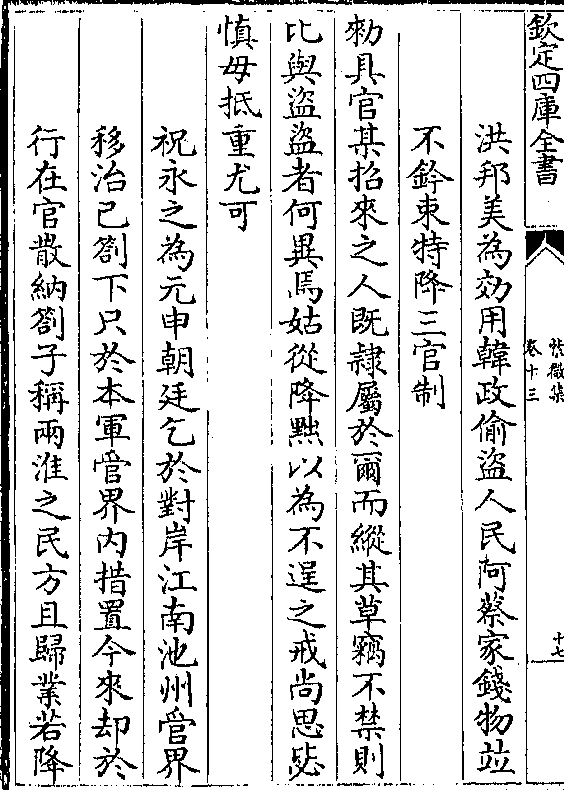 欽定四庫全書
紫微集
卷十三
十七
洪邦美為効用韓政偷盜人民阿蔡家錢物並
不鈐束特降三官制
勑具官某招來之人既隷屬於爾而縱其草竊不禁則
比與盜盜者何異焉姑從降黜以為不逞之戒尚思毖
慎毋抵重尤可
祝永之為元申朝廷乞於對岸江南池州管界
移治已劄下只於本軍管界内措置今來却於
行在官散納劄子稱兩淮之民方且歸業若降